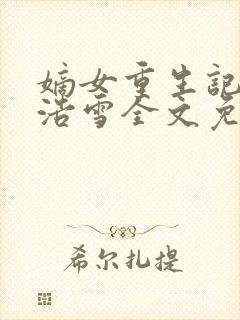 嫡女重生记
浩雪全文免
希尔扎提